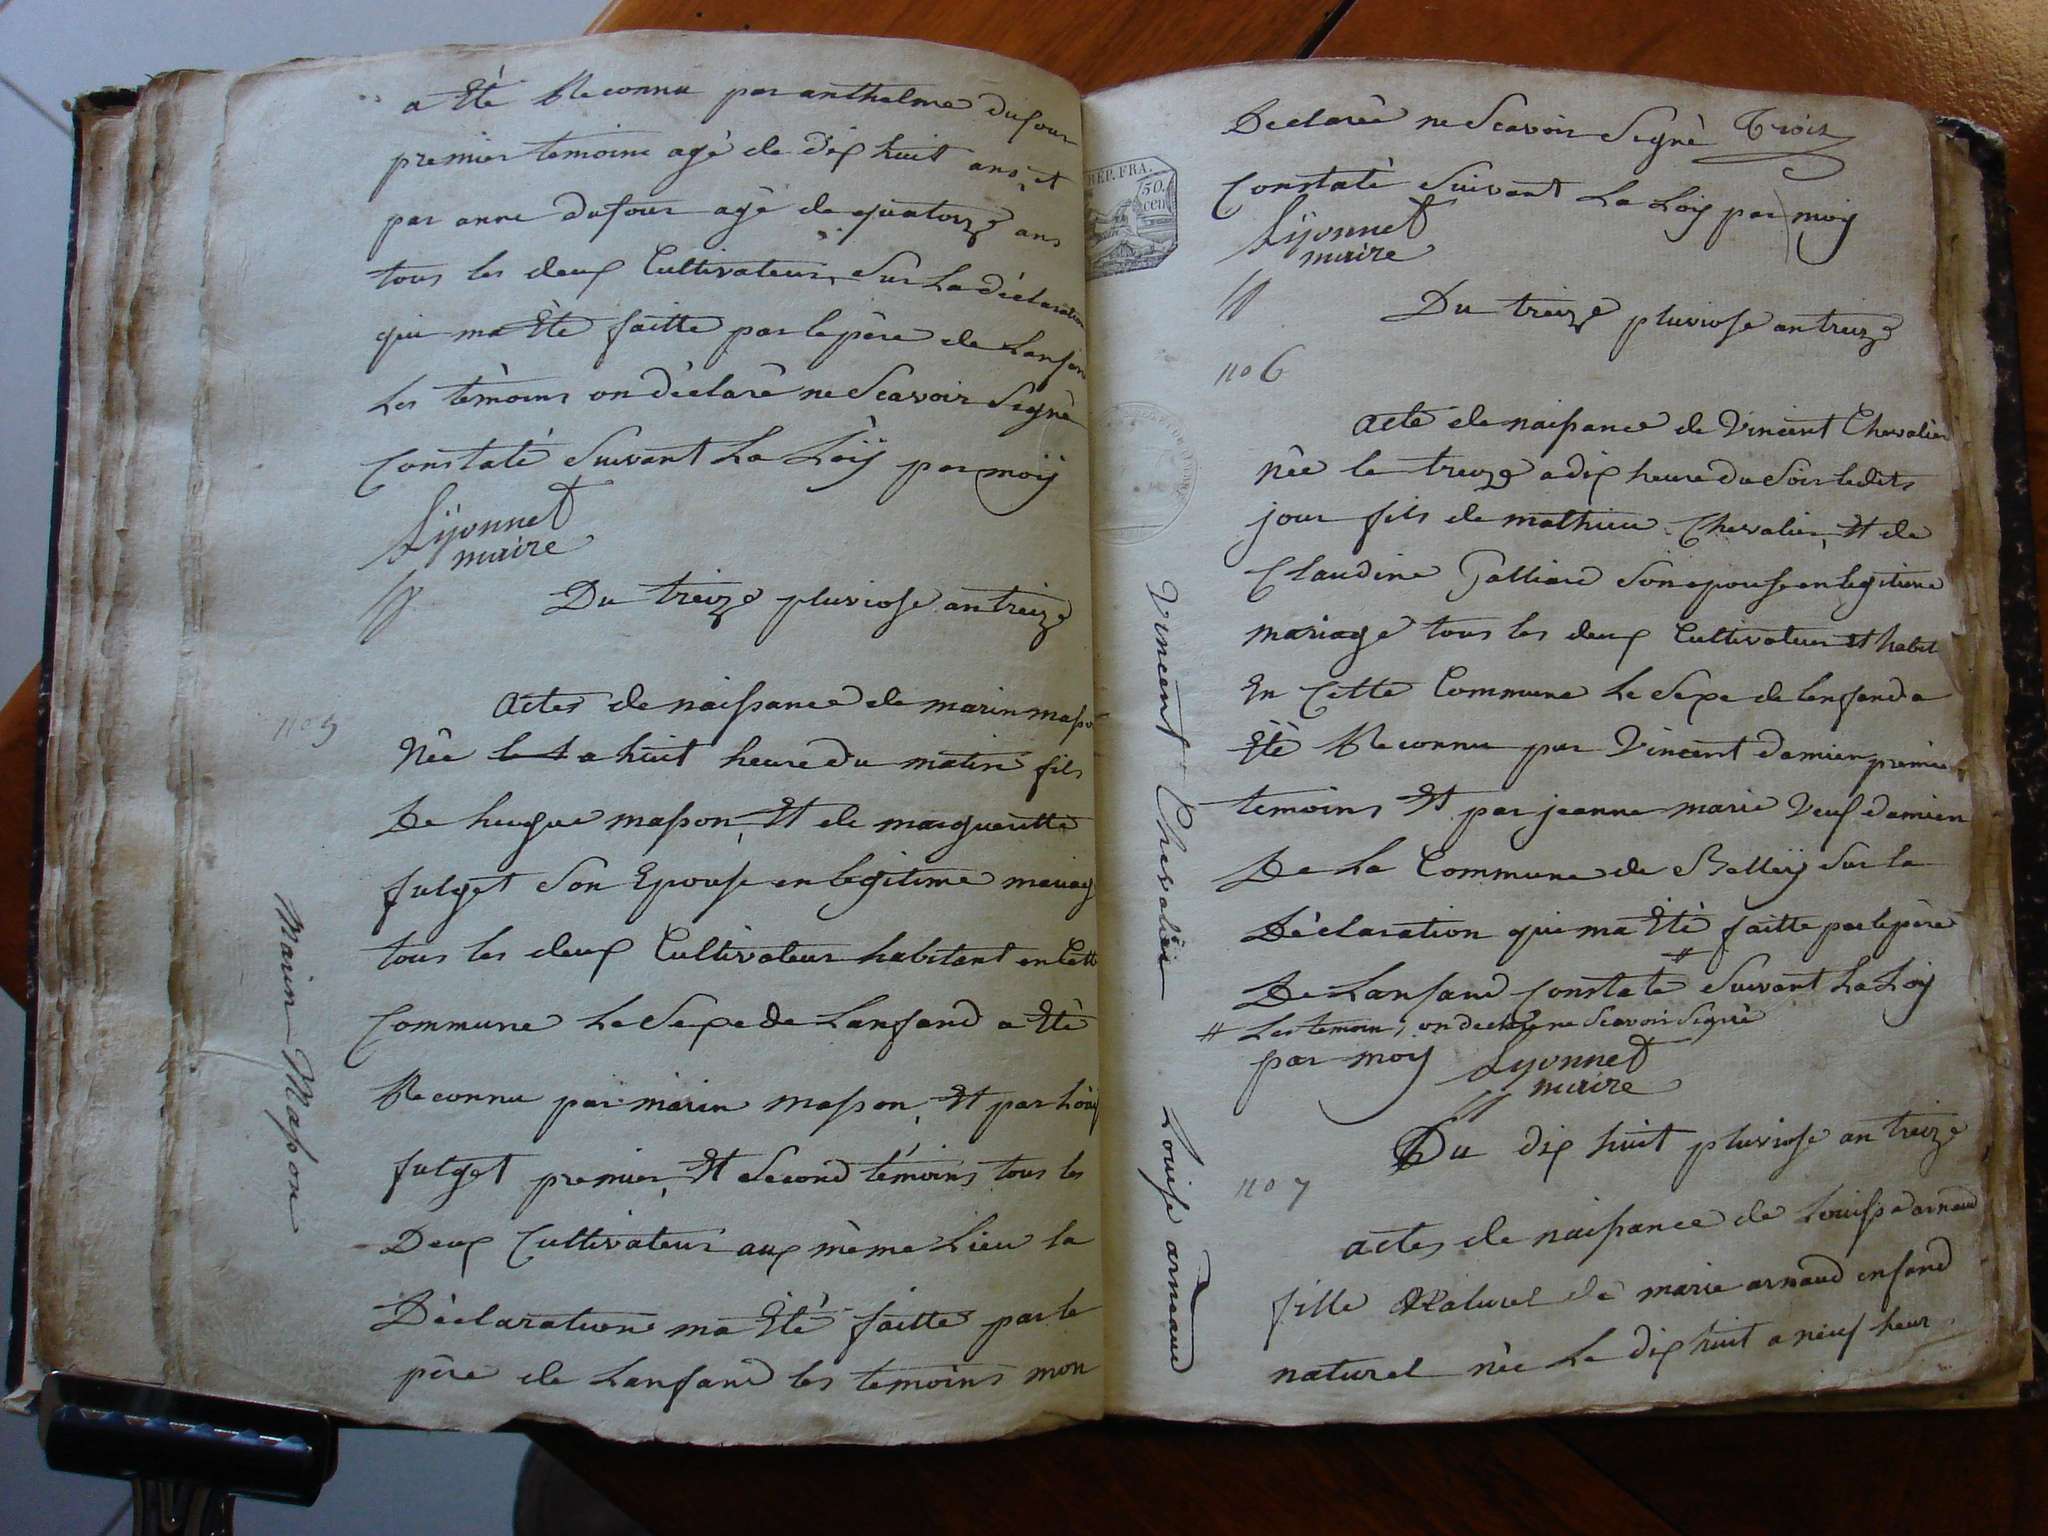 a Eté Reconnu par anthelme dufour
premier temoins agé de dix huit ans, et
par anne dufour agé de quatorze ans
tous les deux Cultivateurs, Sur La déclaration
qui ma Eté faitte par le père de Lanfan
Les témoins on déclaré ne Scavoir Signé
Constaté Suivant La Loÿ par moÿ
Lÿonnet
maire
Du treize pluviose an treize
no 5
Actes de naissance de marin masson
Née le 4 a huit heure du matin fils
De hugue masson, Et de margueritte
fulget Son Epouse en legitime mariag
tous les deux Cultivateur habitant en Cett
Commune Le Sexe de Lanfand a Eté
Reconnu par marin masson, Et par Loui
fulget premier, Et Second témoins tous les
Deux Cultivateurs aux même Lieu la
Déclaration ma Eté faitte par le
père de Lanfand les temoins mon
Marin Masson
Declarée ne Scavoir Segné Trois
REP. FRA.
50.
cen
Constaté Suivant La Loÿ par moÿ
Lÿonnet
maire
Du treize pluviose an treize
no 6
Acte de naissance de Vincent Chevalier
née le treize a dix heure du Soir ledits
jour fils de mathieu Chevalier, Et de
Claudine Galliard Son epouse en legitime
mariage tous les deux Cultivateur et habit
En Cette Commune Le Sexe de lenfand a
Eté Reconnu par Vincent damien premier
temoins Et par jeanne marie Veuf damien
De La Commune de Belleÿ Sur la
Déclaration qui ma Eté faitte par le père
De Lanfand Constaté # Suivant La Loÿ
# Les temoins, on declaré ne Scavoir Signé
par moy Lyonnet
maire
Vincent Chevalier
Du dix huit pluviose an treize
no 7
actes de naissance de Louisse arnaud
fille Naturel de marie arnaud enfand
naturel née Le dix huit a neuf heur
Louise arnaud